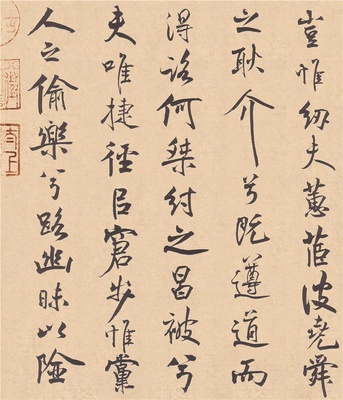 豈惟紉夫蕙茝彼堯舜
之耿介兮既遵道而
得路何桀紂之昌被兮
夫唯捷徑以窘步惟黨
人之偷樂兮路幽昧以險